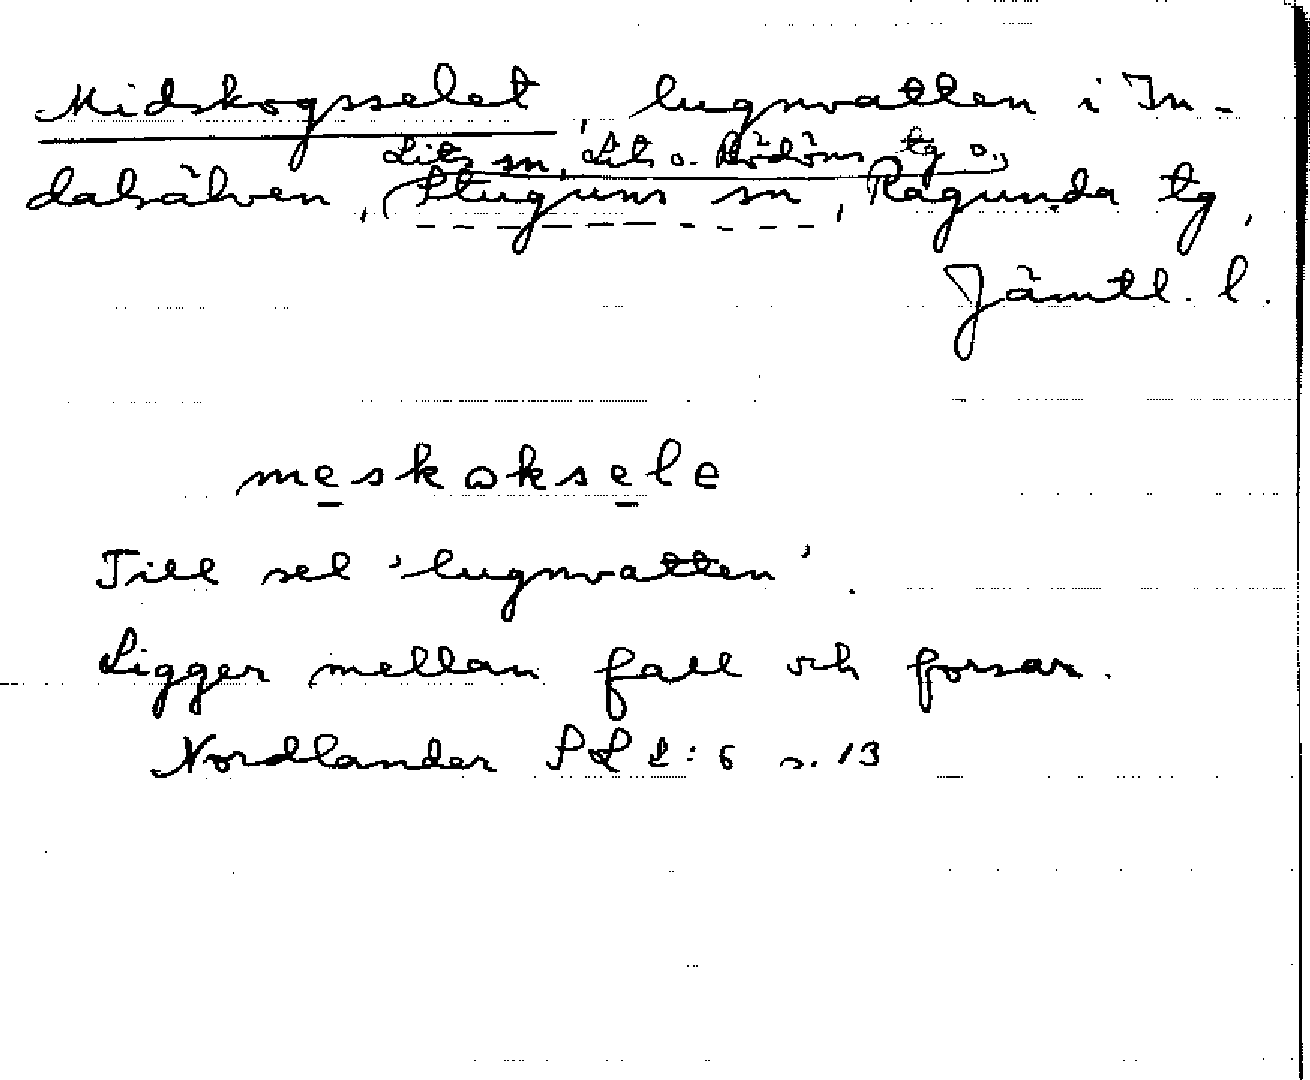 Midskogsselet, lugnvatten i In-
Lits sn, Lits o. Rödöns tg o.
dalsälven, Stuguns sn, Ragunda tg,
Jämtl. l.
meskoksele
Till sel 'lugnvatten'.
Ligger mellan fall och forsar.
Nordlander :6 s. 13